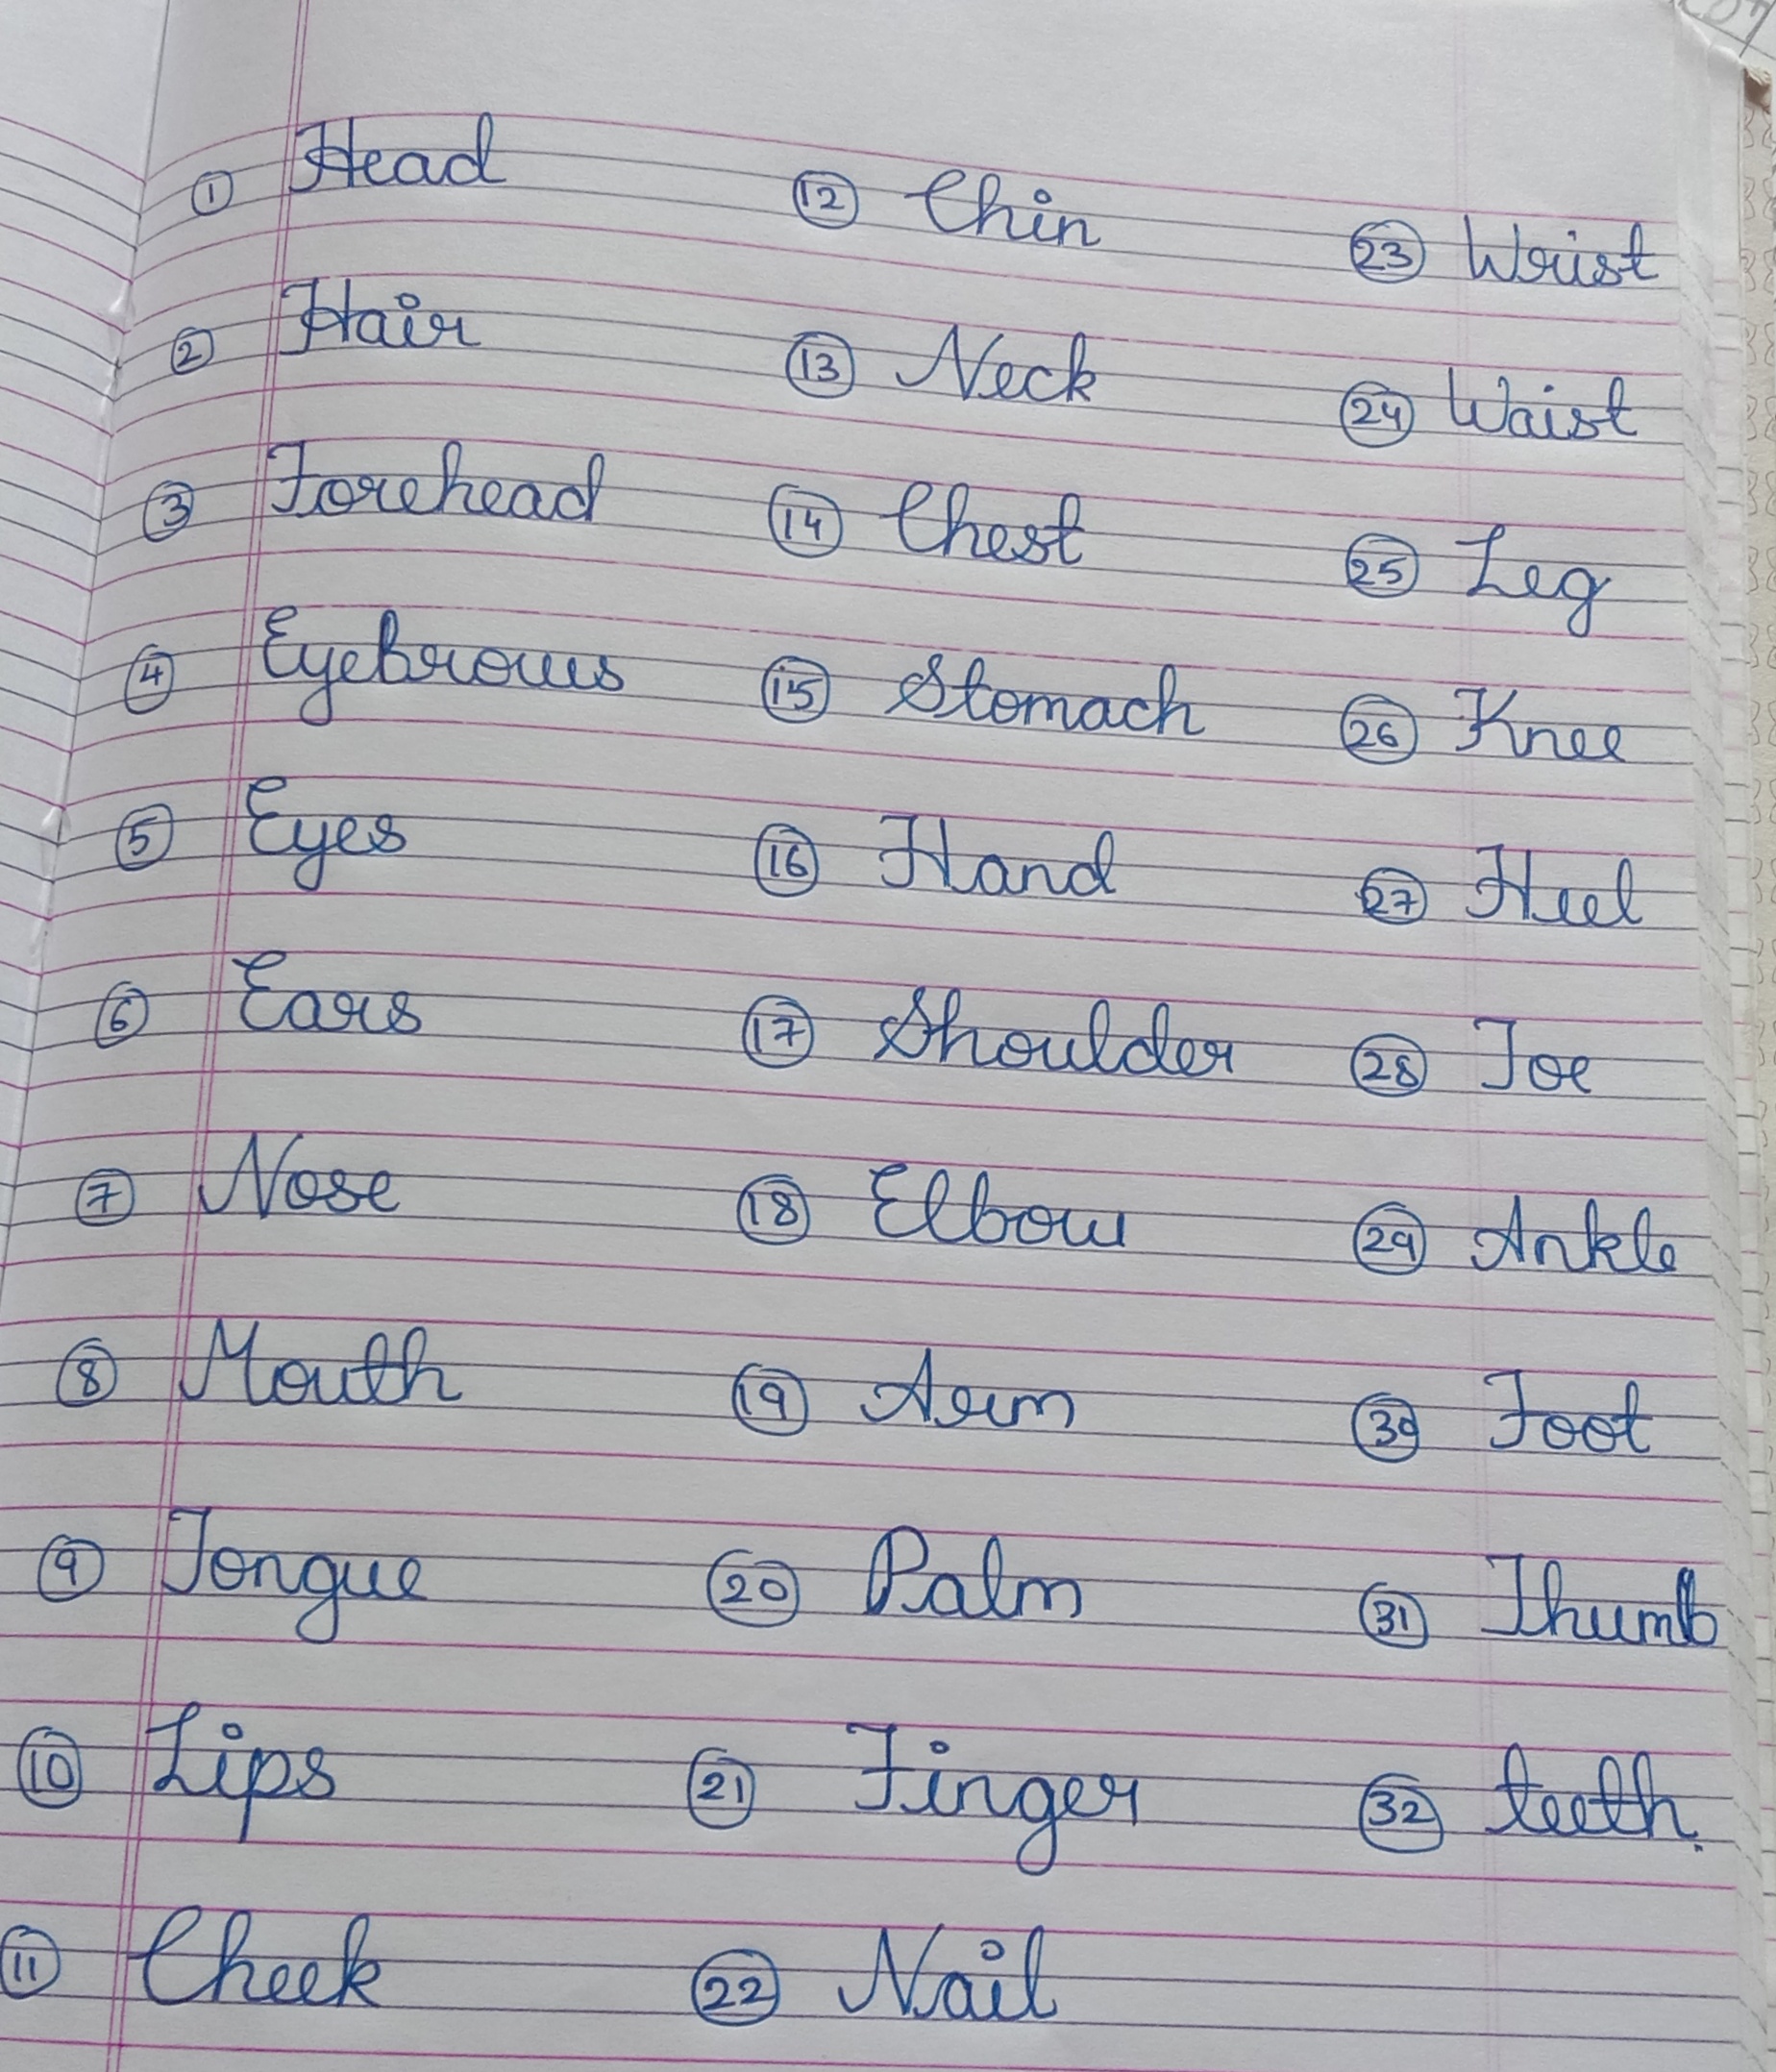 1 Head
2 Hair
3 Forehead
4 Eyebrows
5 Eyes
6 Ears
7 Nose
8 Mouth
9 Tongue
10 Lips
11 Cheek
12 Chin
13 Neck
14 Chest
15 Stomach
16 Hand
17 Shoulder
18 Elbow
19 Arm
20 Palm
21 Finger
22 Nail
23 Wrist
24 Waist
25 Leg
26 Knee
27 Heel
28 Toe
29 Ankle
30 Foot
31 Thumb
32 teeth.